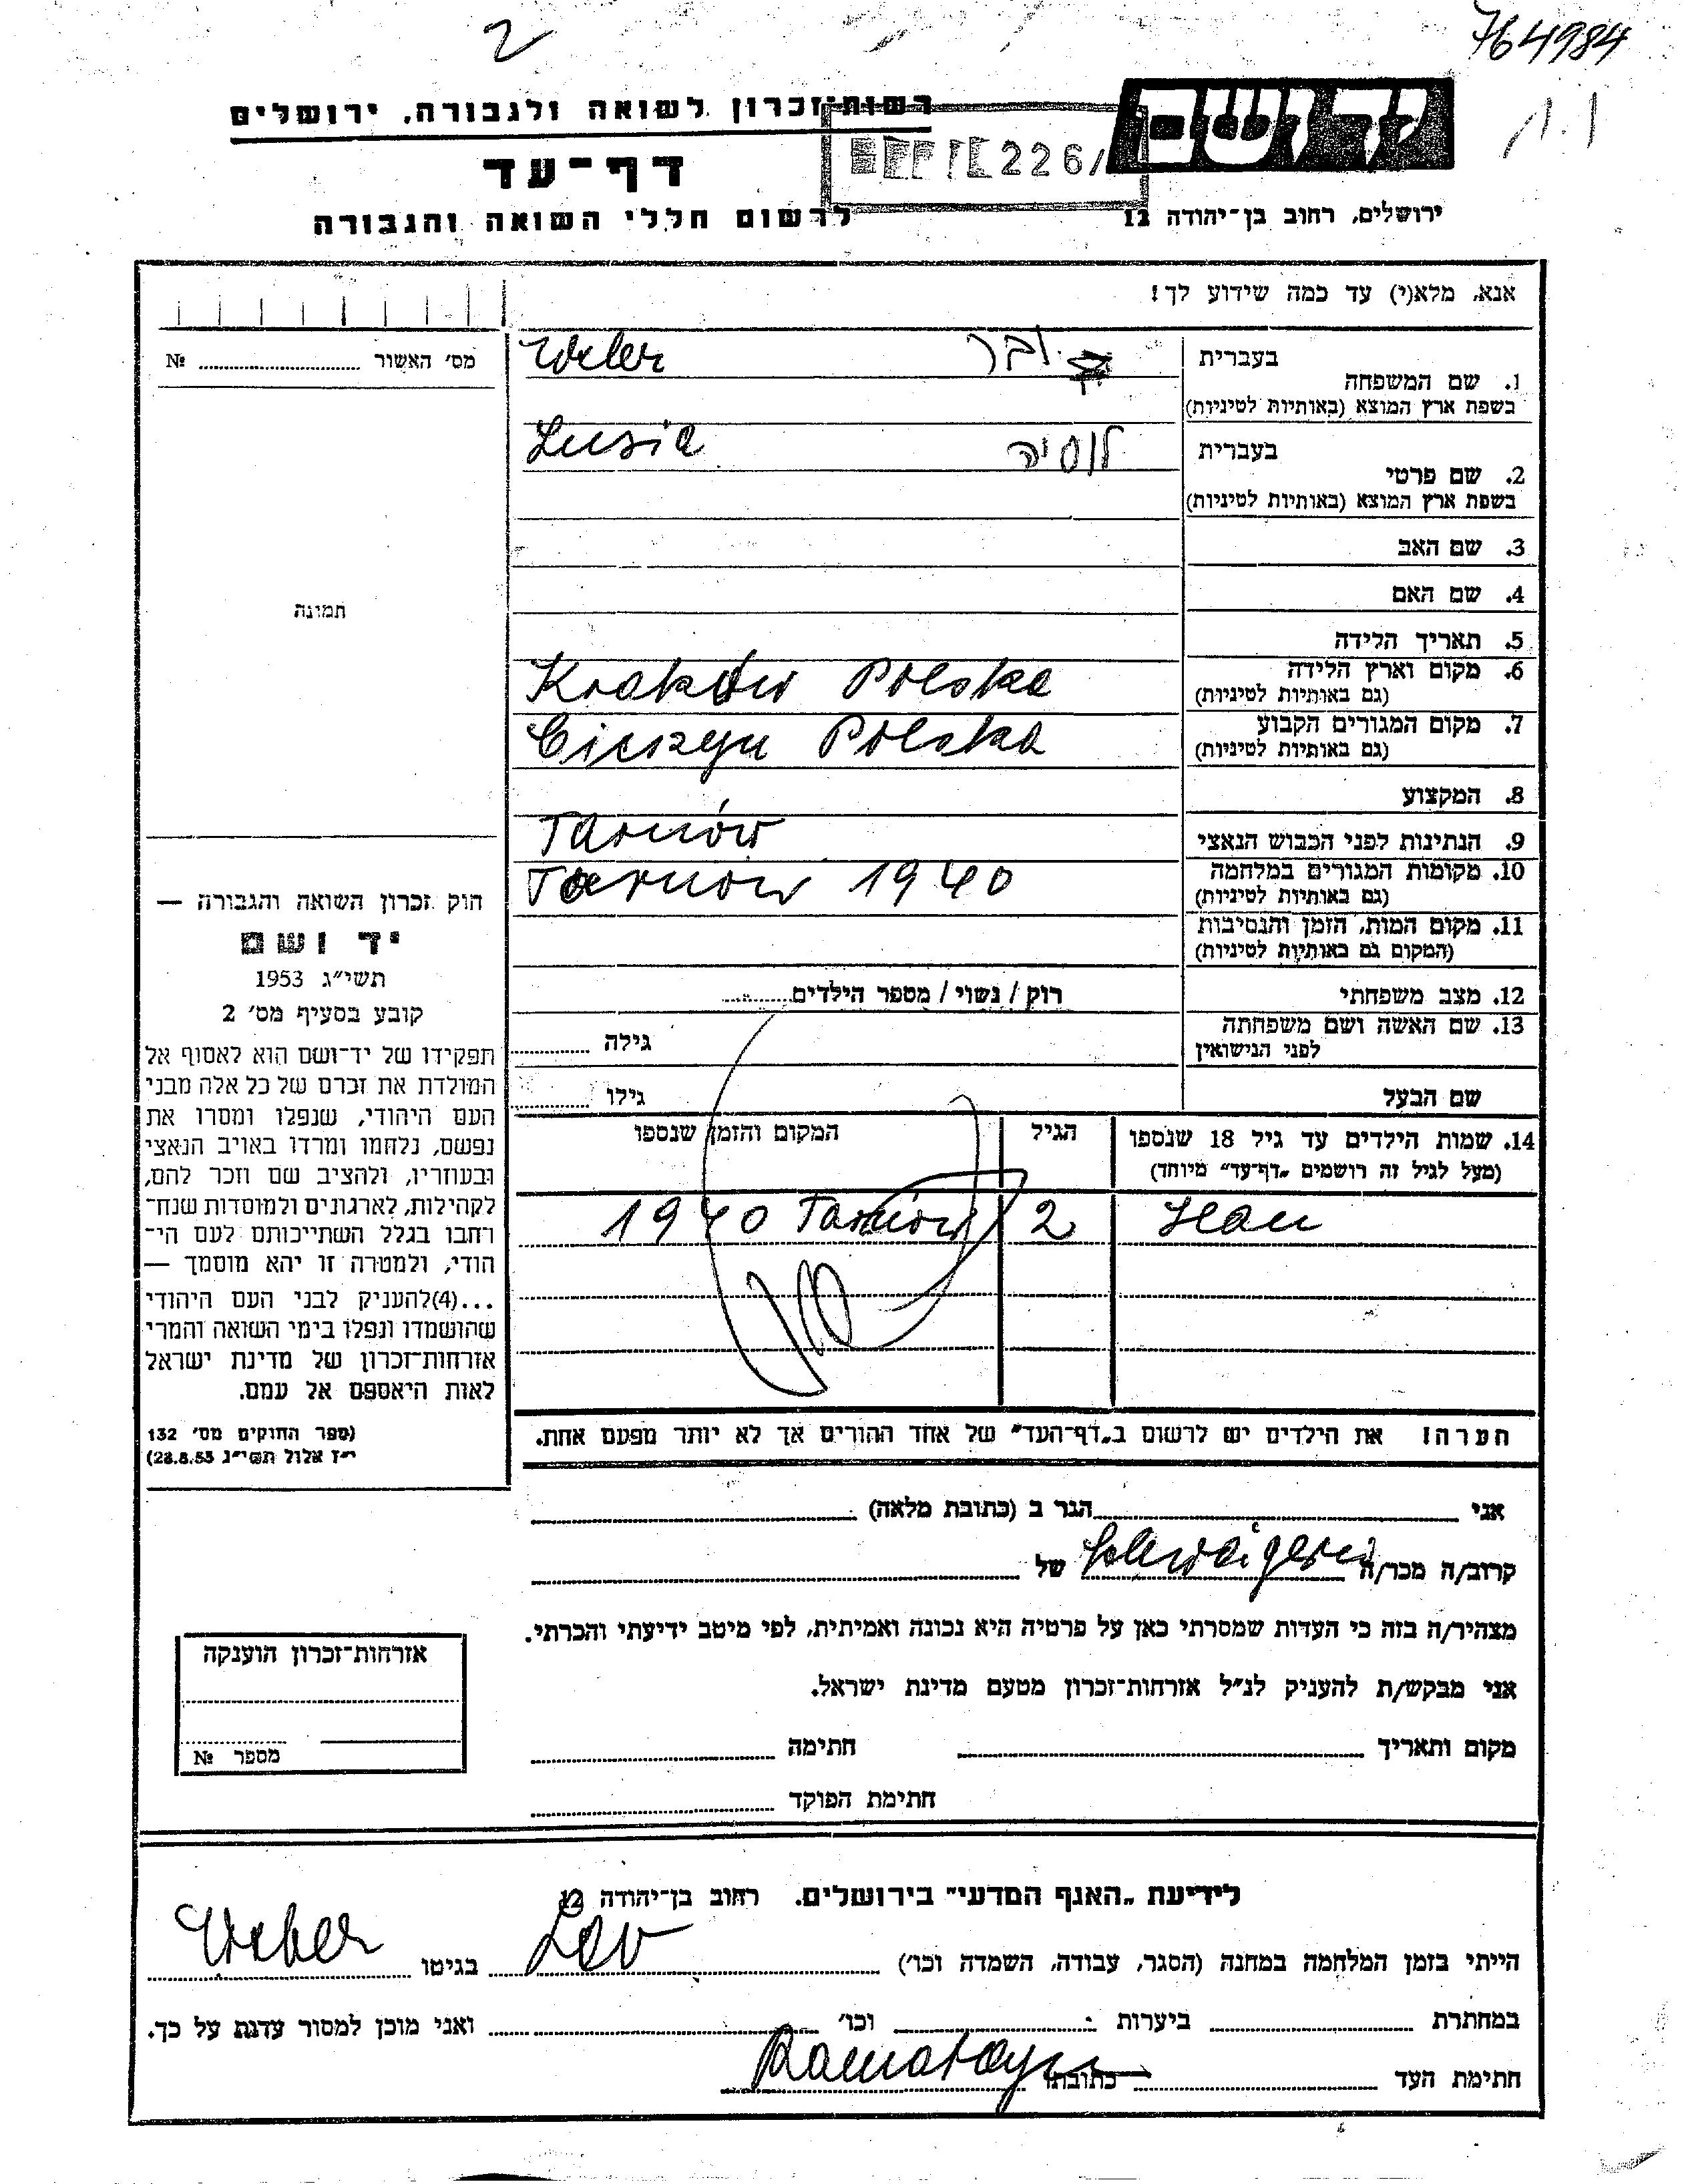 2
764984
רשות־זכרון לשואה ולגבורה, ירושלים
יד ושם
226/
דף־עד
לרשום חללי השואה והגבורה
ירושלים, רחוב בן־יהודה 12
אנא, מלא(י) עד כמה שידוע לך!
מס׳ האשור № 
תמונה
1. שם המשפחה בעברית ובר
בשפת ארץ המוצא (באותיות לטיניות) Weber
2. שם פרטי בעברית לוסיה
בשפת ארץ המוצא (באותיות לטיניות) Lusia
3. שם האב
4. שם האם
5. תאריך הלידה
6. מקום וארץ הלידה
(גם באותיות לטיניות) Kraków Polska
7. מקום המגורים הקבוע
(גם באותיות לטיניות) Cieszyn Polska
8. המקצוע
9. הנתינות לפני הכבוש הנאצי Tarnów
10. מקומות המגורים במלחמה
(גם באותיות לטיניות) Tarnow 1940
11. מקום המות, הזמן והנסיבות
(המקום גם באותיות לטיניות)
12. מצב משפחתי רוק / נשוי / מספר הילדים
13. שם האשה ושם משפחתה
לפני הנישואין גילה
שם הבעל גילו
14. שמות הילדים עד גיל 18 שנספו הגיל המקום והזמן שנספו
(מעל לגיל זה רושמים „דף־עד״ מיוחד)
Ilan 2 1940 Tarnów
הערה! את הילדים יש לרשום ב„דף־העד״ של אחד ההורים אך לא יותר מפעם אחת.
חוק זכרון השואה והגבורה —
יד ושם
תשי״ג 1953
קובע בסעיף מס׳ 2
תפקידו של יד־ושם הוא לאסוף אל
המולדת את זכרם של כל אלה מבני
העם היהודי, שנפלו ומסרו את
נפשם, נלחמו ומרדו באויב הנאצי
ובעוזריו, ולהציב שם וזכר להם,
לקהילות, לארגונים ולמוסדות שנח־
רחבו בגלל השתייכותם לעם הי־
הודי, ולמטרה זו יהא מוסמך —
...(4)להעניק לבני העם היהודי
שהושמדו ונפלו בימי השואה והמרי
אזרחות־זכרון של מדינת ישראל
לאות היאספם אל עמם.
(ספר החוקים מס׳ 132
י״ז אלול תשי״ג 28.8.53)
אני הגר ב (כתובת מלאה)
קרוב/ה מכר/ה של
מצהיר/ה בזה כי העדות שמסרתי כאן על פרטיה היא נכונה ואמיתית, לפי מיטב ידיעתי והכרתי.
אני מבקש/ת להעניק לנ״ל אזרחות־זכרון מטעם מדינת ישראל.
מקום ותאריך חתימה
חתימת הפוקד
אזרחות־זכרון הוענקה
מספר №
לידיעת „האגף המדעי״ בירושלים. רחוב בן־יהודה 12
הייתי בזמן המלחמה במחנה (הסגר, עבודה, השמדה וכו׳) Lev בגיטו Weber
במחתרת ביערות וכו׳ ואני מוכן למסור עדות על כך.
חתימת העד כתובתו Ramatayn